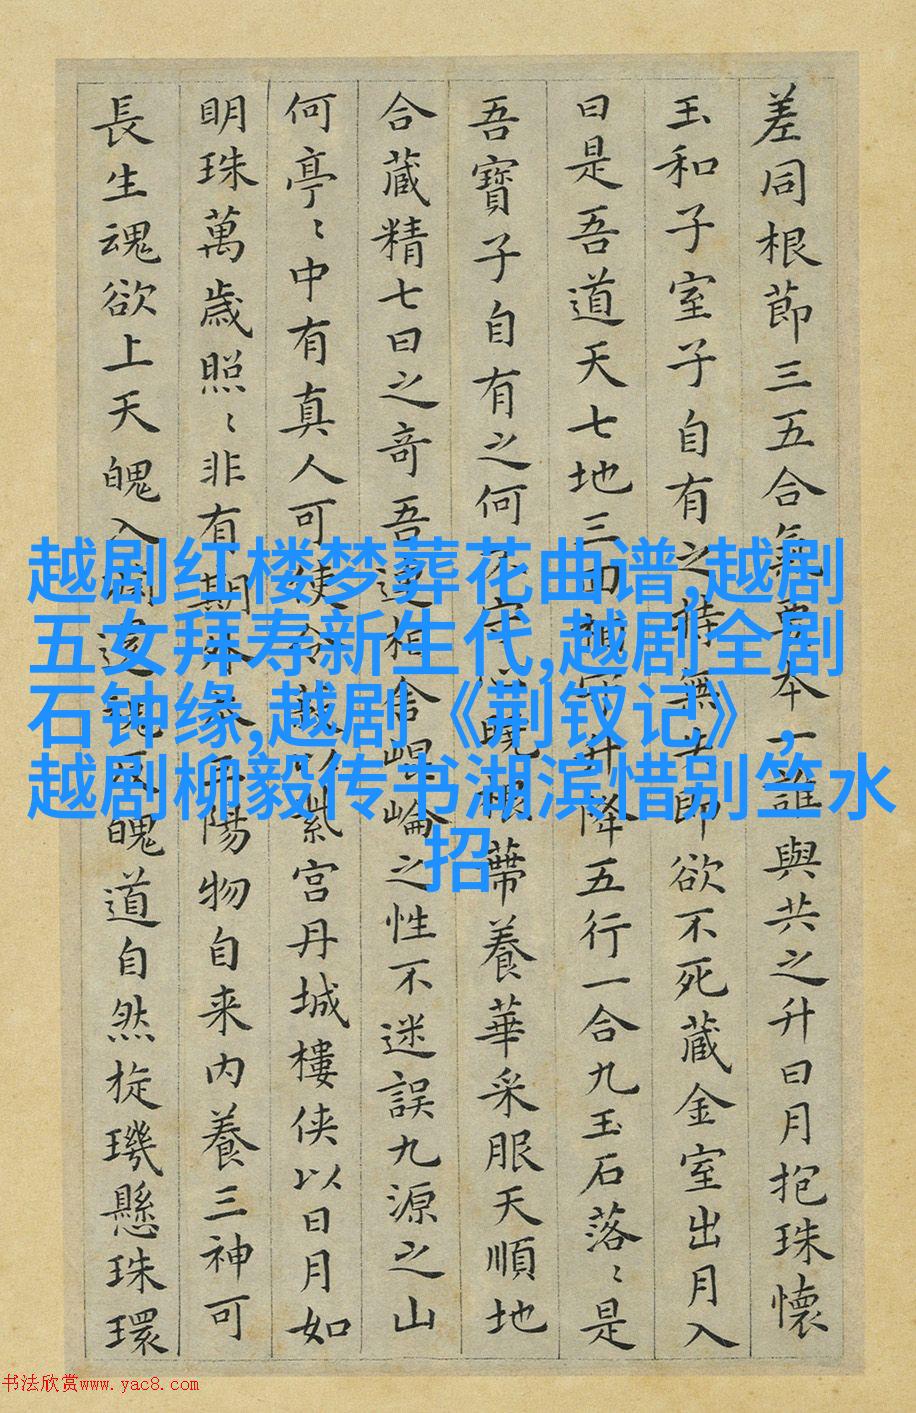 差同根節三五合氣要本一誰與共之升日月抱珠懷
玉和子室子自有之持無失即欲不死藏金室出月入
日是吾道天七地三回相守升降五行一合九玉石落〻是
吾寶子自有之何不守心曉根蔕養華采服天順地
合藏精七日之奇吾連相舍崐崘之性不迷誤九源之山
何亭〻中有真人可使令以紫宮丹城樓侠以日月如
明珠萬歲照〻非有期外本三陽物自来内養三神可
長生魂欲上天魄入淵還魂反魄道自然旋璣懸珠環
越剧红楼梦葬花曲谱,越剧
五女拜寿新生代,越剧全剧
石钟缘,越剧《荆钗记》,
越剧柳毅传书湖滨惜别竺水
招
书法欣赏www.yac8.com